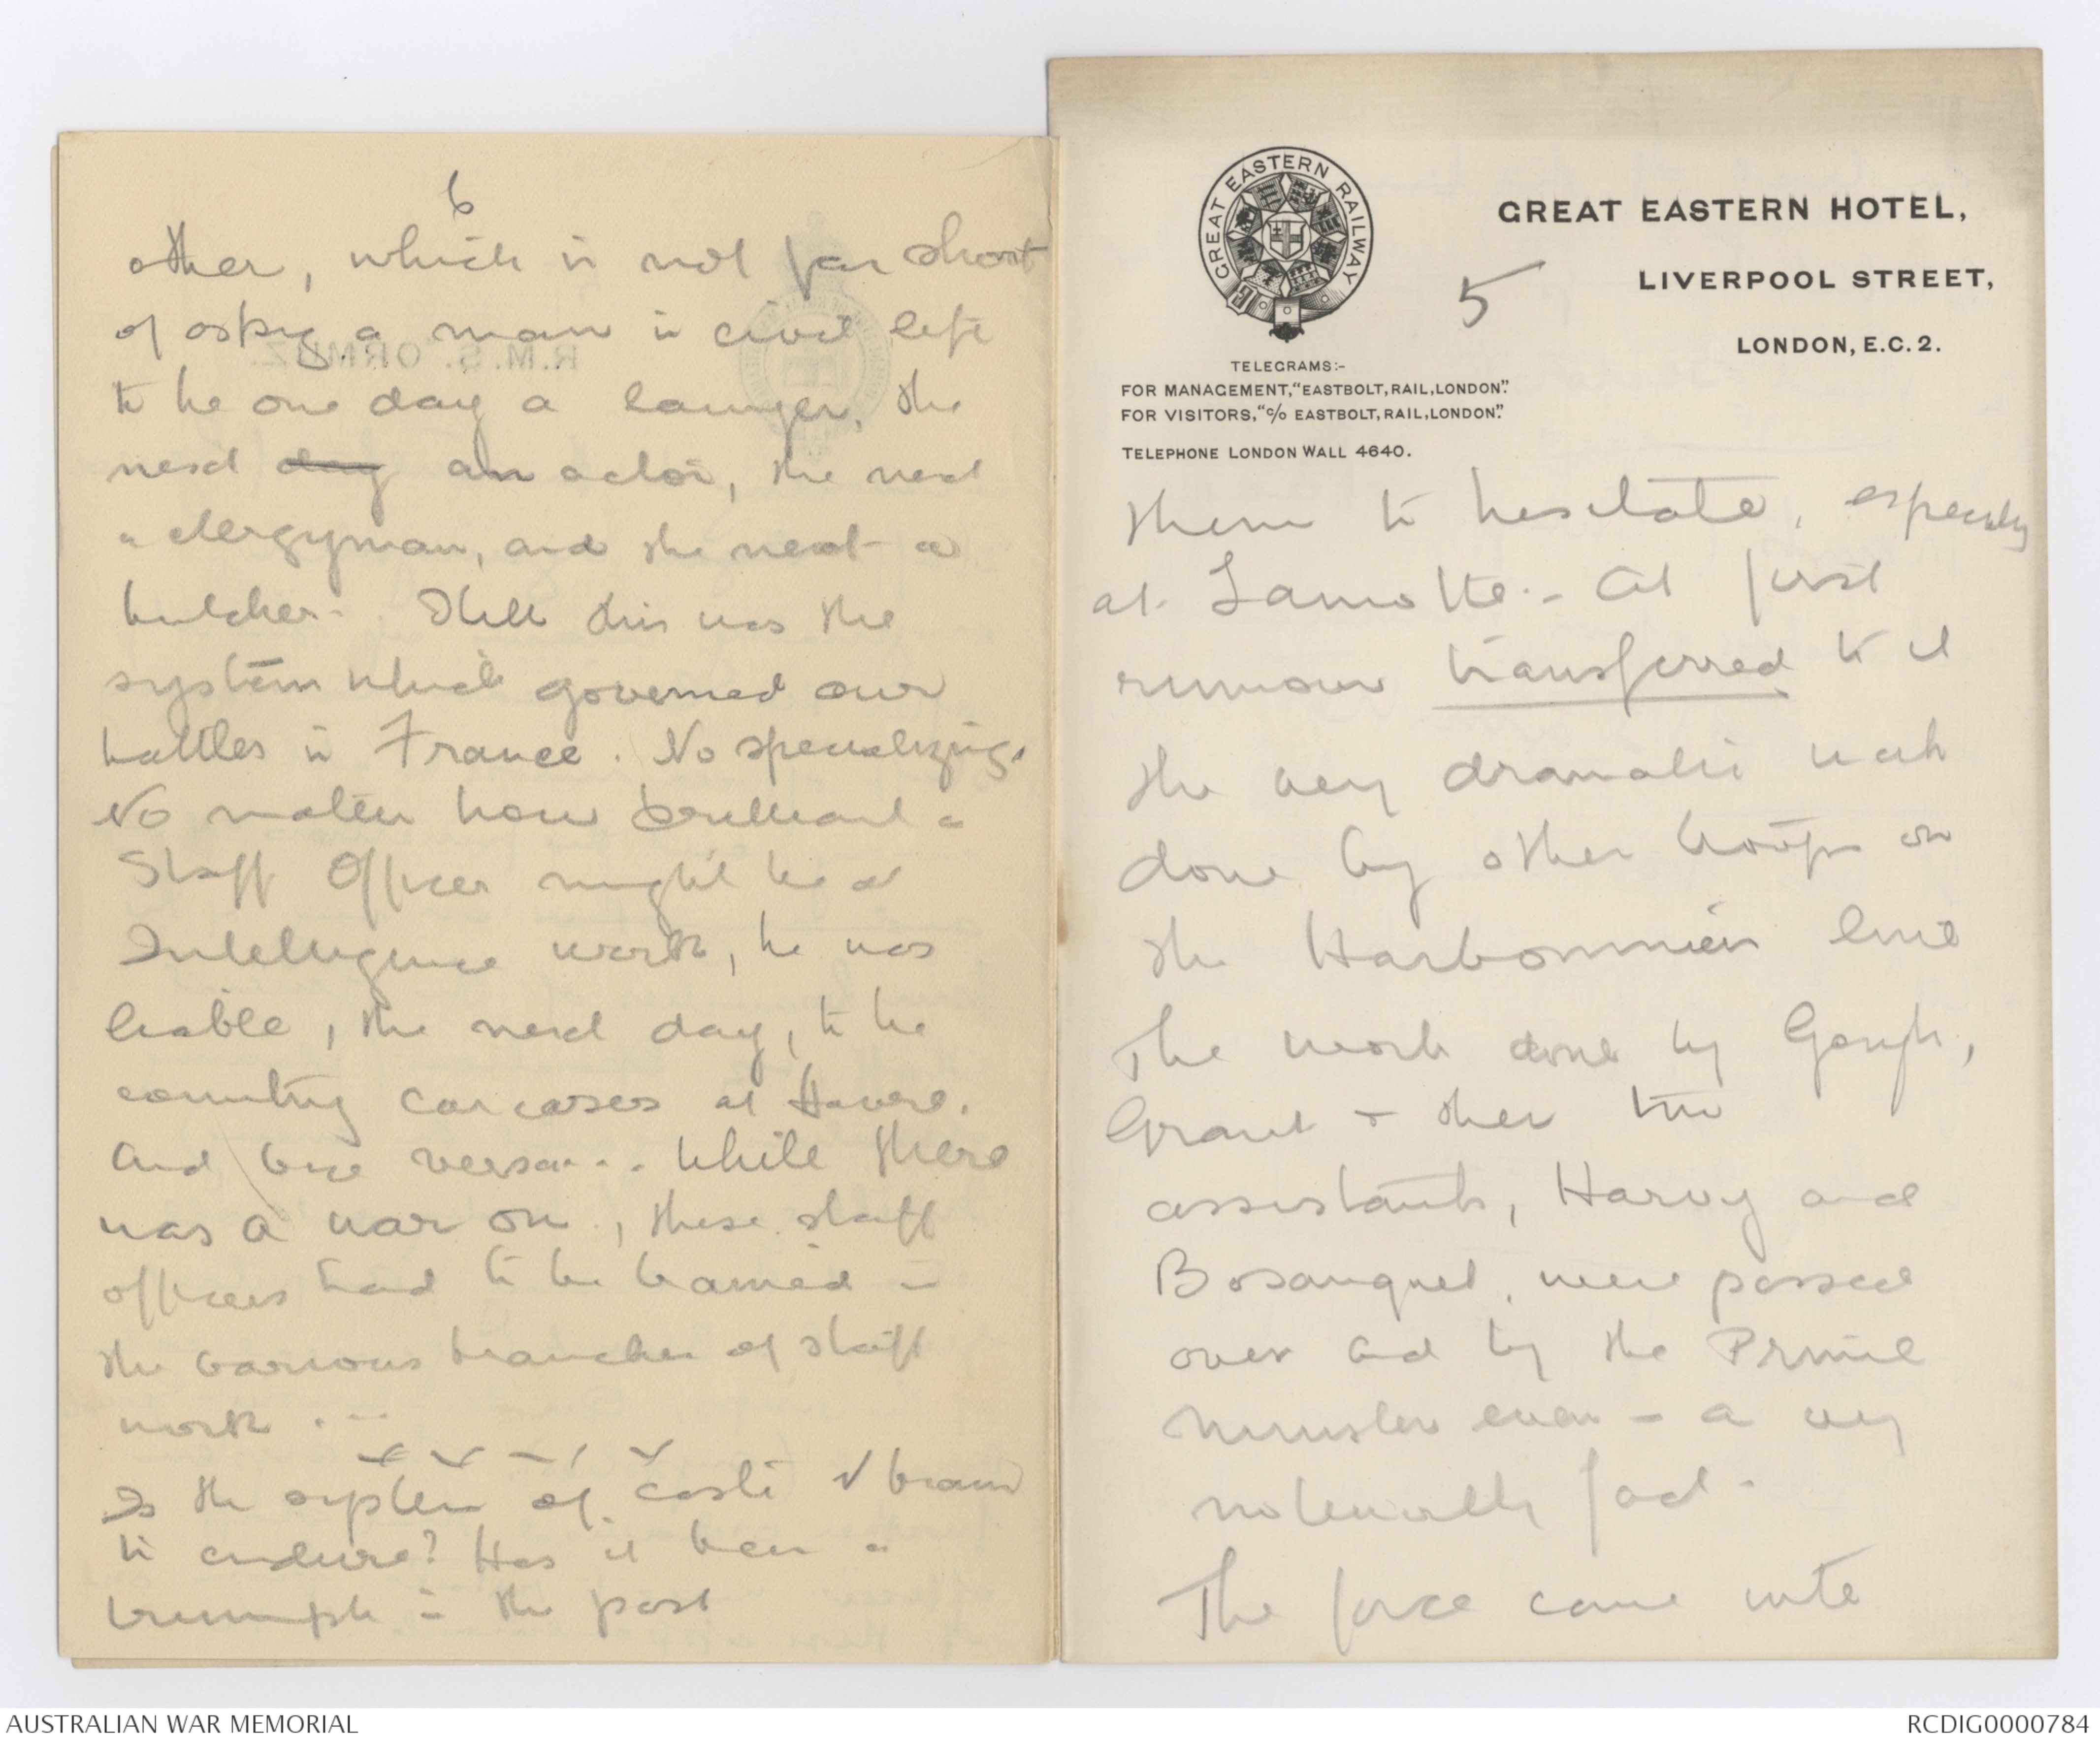 6
other, which is not far short
of asking a man in civil life
to be one day a lawyer, the
next day an actor, the next
a clergyman, and the next a
butcher. Still this was the
system which governed our
battles in France. No specializing.
No matter how brilliant a
Staff Officer might be at
Intelligence work, he was
liable, the next day, to be
counting carcases at Havre.
And vice versa... While there
was a war on, these staff
officers had to be trained in
the various branches of staff
work. -
Is the system of caste &
to endure? Has it been a
triumph in the past
R.M.S. "ORMUZ."
GREAT EASTERN RAILWAY
GREAT EASTERN HOTEL,
LIVERPOOL STREET,
LONDON, E.C.2.
5
TELEGRAMS:-
FOR MANAGEMENT, "EASTBOLT, RAIL, LONDON".
FOR VISITORS, "C/O EASTBOLT, RAIL, LONDON".
TELEPHONE LONDON WALL 4640.
them to hesitate, especially
at Lamotte. - At first
rumour transferred to it
the very dramatic work
done by other troops on
the Harbonnieres line
The work done by Gough,
Grant & their two
assistants, Harvy and
Bosanquet, were passed
over and by the Prime
Minister even - a very
noteworthy fact.
The force came into
AUSTRALIAN WAR MEMORIAL
RCDIG0000784